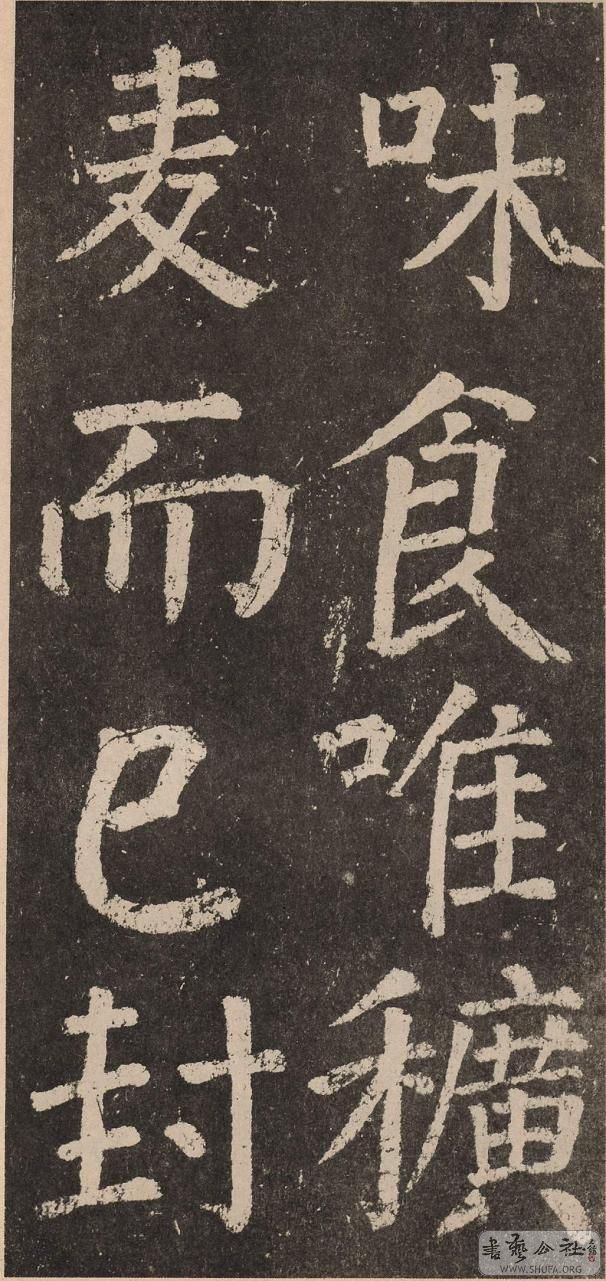 味食唯穬
麦而已封
書藝公社
WWW.SHUFA.ORG